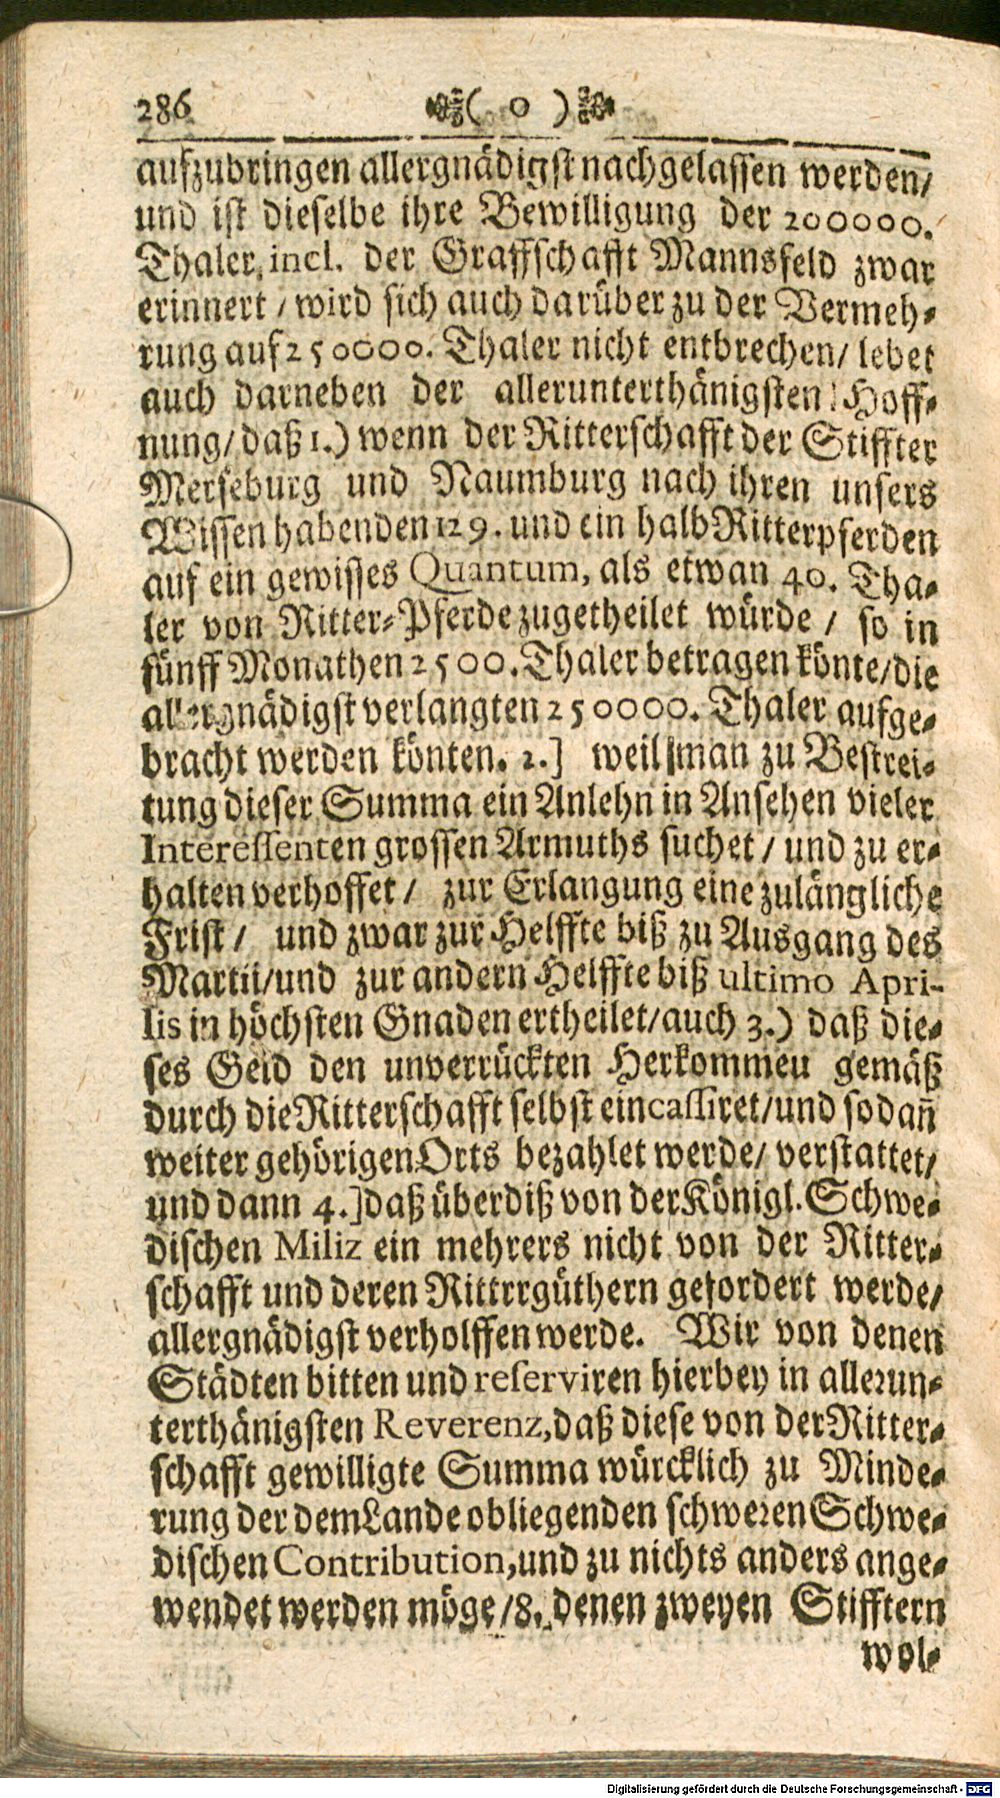 286 ( o )
aufzubringen allergnädigst nachgelassen werden/
und ist dieselbe ihre Bewilligung der 200000.
Thaler, incl. der Graffschafft Mannsfeld zwar
erinnert / wird sich auch darüber zu der Vermeh-
rung auf 250000. Thaler nicht entbrechen/ lebet
auch darneben der allerunterthänigsten Hoff-
nung/ daß 1.) wenn der Ritterschafft der Stiffter
Merseburg und Naumburg nach ihren unsers
Wissen habenden 129. und ein halb Ritterpferden
auf ein gewisses Quantum, als etwan 40. Tha-
ler von Ritter-Pferde zugetheilet würde / so in
fünff Monathen 2500. Thaler betragen könte/die
allergnädigst verlangten 250000. Thaler aufge-
bracht werden könten. 2.] weil man zu Bestrei-
tung dieser Summa ein Anlehn in Ansehen vieler
Interessenten grossen Armuths suchet / und zu er-
halten verhoffet / zur Erlangung eine zulängliche
Frist / und zwar zur Helffte biß zu Ausgang des
Martii/und zur andern Helffte biß ultimo Apri-
lis in höchsten Gnaden ertheilet/auch 3.) daß die-
ses Geld den unverrückten Herkommeu gemäß
durch die Ritterschafft selbst eincassiret/und sodañ
weiter gehörigen Orts bezahlet werde/ verstattet/
und dann 4.]daß überdiß von der Königl. Schwe-
dischen Miliz ein mehrers nicht von der Ritter-
schafft und deren Rittrrgüthern gefordert werde/
allergnädigst verholffen werde. Wir von denen
Städten bitten und reserviren hierbey in allerun-
terthänigsten Reverenz, daß diese von der Ritter-
schafft gewilligte Summa würcklich zu Minde-
rung der dem Lande obliegenden schweren Schwe-
dischen Contribution, und zu nichts anders ange-
wendet werden möge /8. denen zweyen Stifftern
wol-
Digitalisierung gefördert durch die Deutsche Forschungsgemeinschaft - DFG